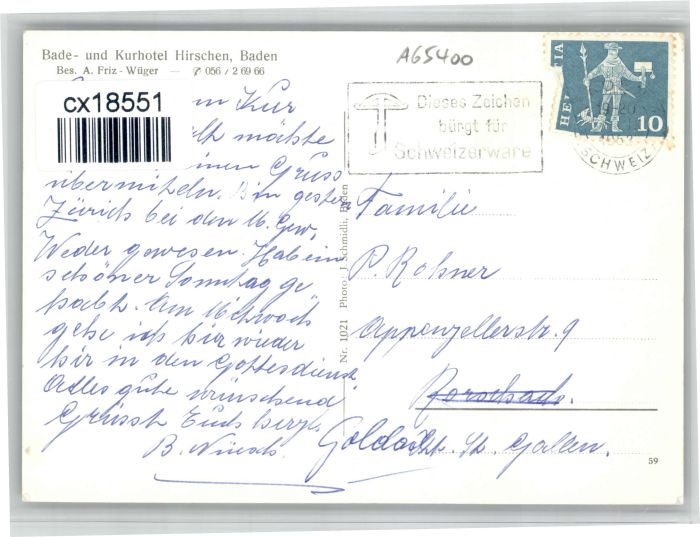 Bade- und Kurhotel Hirschen, Baden
Bes. A. Friz - Wüger — ✆ 056 / 2 69 66
A65400
cx18551
HELVETIA
10
Dieses Zeichen
bürgt für
Schweizerware
SCHWEIZ
Kur
möchte
Gruss
übermitteln. Bin gestern
Zürich bei den M. Gew.
Weder gewesen. Hab ein
schöner Sonntag ge
habt. Am Mitwoch
gehe ich hier wieder
hir in den Gottesdienst
Alles gute wünschend
Grüsst Euch herzl.
B. Nüesch.
Nr. 1021 Photo J. Schmidli, Baden
Familie
P. Rohner
Appenzellerstr. 9
Rorschach.
Goldach. St. Gallen.
59